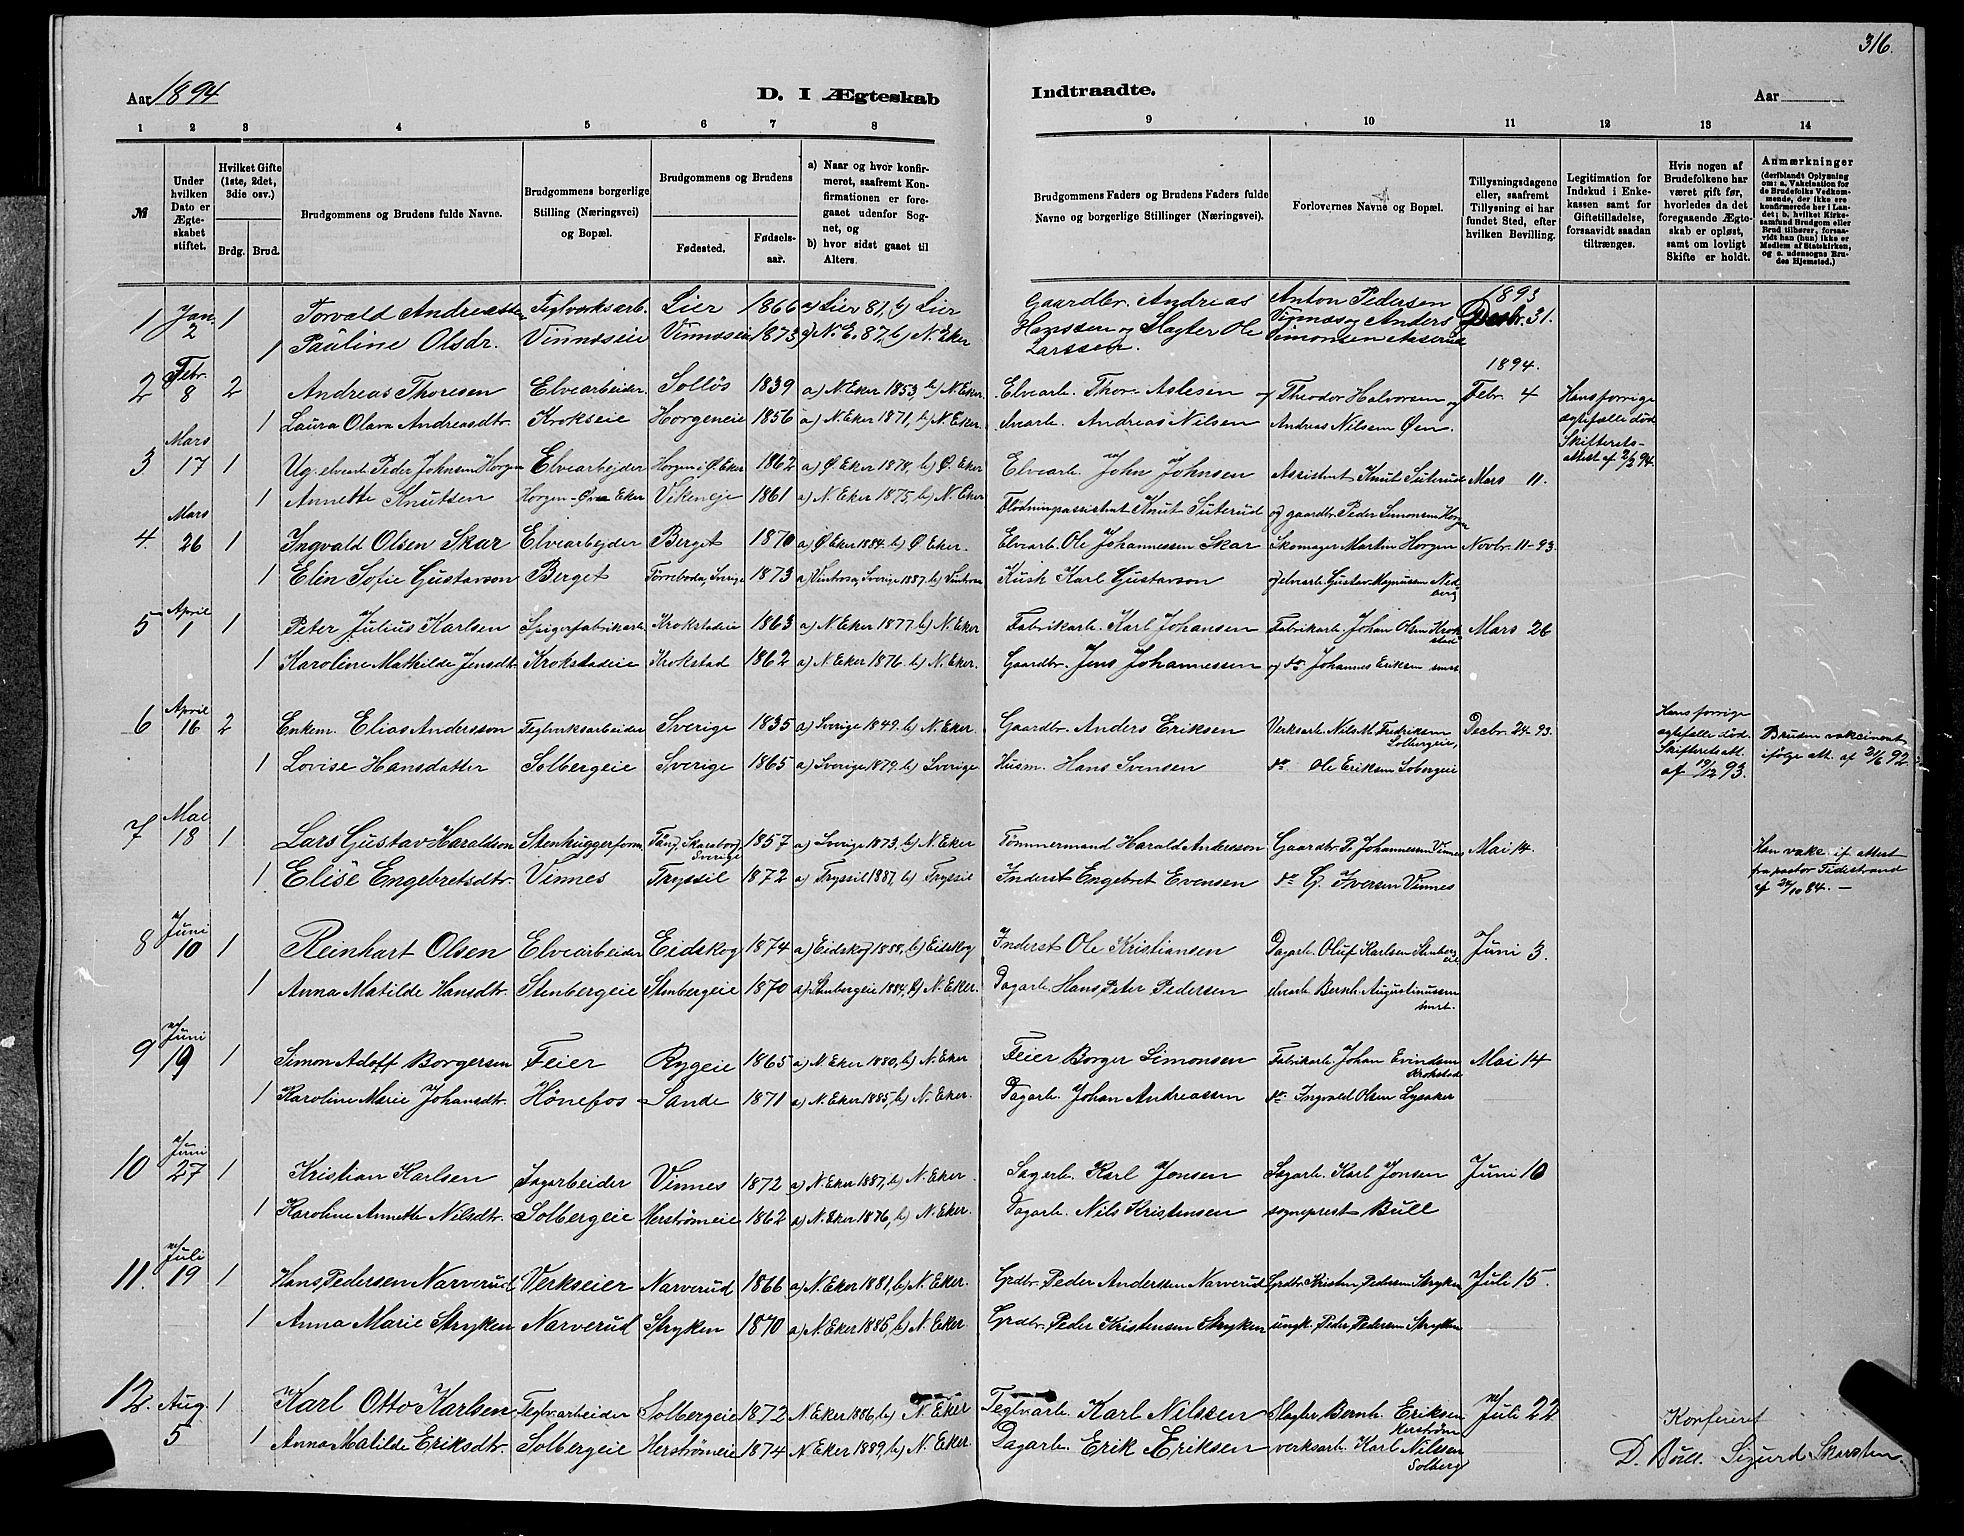 316.
Aar 1894
D. I Ægteskab Indtraadte.
Aar
1 2 3 4 5 6 7 8 9 10 11 12 13 14
№
Under hvilken Dato er Ægteskabet stiftet.
Hvilket Gifte (1ste, 2det, 3die osv.)
Brdg. Brud.
Brudgommens og Brudens fulde Navne.
Brudgommens borgerlige Stilling (Næringsvei) og Bopæl.
Brudgommens og Brudens
Fødested. Fødselsaar.
a) Naar og hvor konfirmeret, saafremt Konfirmationen er foregaaet udenfor Sognet, og
b) hvor sidst gaaet til Alters.
Brudgommens Faders og Brudens Faders fulde Navne og borgerlige Stillinger (Næringsvei).
Forlovernes Navne og Bopæl.
Tillysningsdagene eller, saafremt Tillysning ei har fundet Sted, efter hvilken Bevilling.
Legitimation for Indskud i Enkekassen samt for Giftetilladelse, forsaavidt saadan tiltrænges.
Hvis nogen af Brudefolkene har været gift før, hvorledes da det foregaaende Ægteskab er opløst, samt om lovligt Skifte er holdt.
Anmærkninger (deriblandt Oplysning om: a. Vakcination for de Brudefolks Vedkommende, der ikke ere konfirmerede her i Landet; b. hvilket Kirkesamfund Brudgom eller Brud tilhører, forsaavidt han (hun) ikke er Medlem af Statskirken, og c. udensogns Brudes Hjemsted.)
1 Jan. 2 1 Torvald Andreassen Teglverksarb. Lier 1866 a) Lier 81, b) Lier Gaardbr. Andreas Anton Pedersen 1893
1 Pauline Olsdr. Vinnæseie Vinnæseie 1873 a) N.E. 87, b) N. Eker Hanssen og Slagter Ole Vinnæs og Anders Decbr. 31.
Larssen. Simonsen Aaserud
1894.
2 Febr. 8 2 Andreas Thoresen Elvearbeider Solløs 1839 a) N. Eker 1853, b) N. Eker. Elvearb. Thor Aslesen og Theodor Halvorsen og Febr. 4 Hans forrige
1 Laura Olava Andreasdtr. Krokseie Horgeneie 1856 a) N. Eker 1871, b) N. Eker. elvearb. Andreas Nilsen Andreas Nilsen Øen. ægtefælle død
Skifterets-
attest af 2/2 94.
3 Mars 17 1 Ug. elvearb. Peder Johnsen Horgen Elvearbejder Horgen i Ø. Eker 1862 a) Ø. Eker 1878, b) Ø. Eker Elvearb. John Johnsen Assistent Knut Suterud Mars 11.
1 Annette Knutsen Horgen-Øvre Eker Vikeneje 1861 a) N. Eker 1875, b) N. Eker Flødningsassistent Knut Suterud og gaardbr. Peder Simonsen Horgen
4. Mars 26 1 Ingvald Olsen Skar Elvearbejder Berget 1870 a) Ø Eker 1884. b) Ø Eker. Elvearb. Ole Johannessen Skar Skomager Martin Horgen Novbr. 11-93.
1 Elin Sofie Gustavson Berget Törreboda, Sverige 1873 a) Vintrosa, Sverige 1887, b) Vintrosa Kusk Karl Gustavson og elvearb. Gustav Magnussen Nedberg
5 April 1 1 Peter Julius Karlsen Spigerfabrikarb. Krokstadeie 1863 a) N. Eker 1877. b) N. Eker Fabrikarb. Karl Johansen Fabrikarb. Johan Olsen Krokstad Mars 26
1 Karoline Mathilde Jensdtr. Krokstadeie Krokstad 1862 a) N. Eker 1876. b) N. Eker. Gaardbr. Jens Johannessen og do Johannes Eriksen smst
6 April 16 2 Enkem. Elias Andersson Teglverksarbeider Sverige 1835 a) Sverige 1849. b) N. Eker. Gaardbr. Anders Eriksen Verksarb. Nils Fredriksen Solbergeie, Decbr. 24-93. Hans forrige
1 Lovise Hansdatter Solbergeie Sverige 1865 a) Sverige 1879. b) Sverige Husm. Hans Svensen do Ole Eriksen Solbergeie ægtefælle død.
Skifteretsatt. af 19/12 93. Bruden vakcineret ifølge att. af 21/6 92.
7 Mai 18 1 Lars Gustav Haraldson Stenhuggerform. Tång, Skaraborg, Sverige 1857 a) Sverige 1873, b) N. Eker Tømmermand Harald Andersson Gaardbr. P. Johannessen Vinnes Mai 14. Han vakc. if. attest
1 Elise Engebretsdtr. Vinnes Tryssil 1872 a) Tryssil 1887, b) Tryssil Inderst Engebret Evensen do G. Iversen Vinnes fra pastor Tidestrand
af 24/10 84. —
8 Juni 10 1 Reinhart Olsen Elvearbeider Eidskog 1874 a) Eidskog 1888, b) Eidskog Inderst Ole Kristiansen Dagarb. Oluf Karlsen Stenbergeie Juni 3.
1 Anna Matilde Hansdtr. Stenbergeie Stenbergeie 1870 a) Stenbergeie 1884, b) N. Eker. Dagarb. Hans Peter Pedersen elvearb. Bernh. Augustinussen smst.
9 Juni 19 1 Simon Adolf Borgersen Feier Rygeie 1865 a) N. Eker 1880, b) N. Eker Feier Borger Simonsen Fabrikarb. Johan Evindsen Krokstad Mai 14
1 Karoline Marie Johansdtr. Hönefos Sande 1871 a) N. Eker 1885, b) N. Eker. Dagarb. Johan Andreassen do. Ingvald Olsen Lysaker
10 Juni 27 1 Kristian Karlsen Sagarbeider Vinnes 1872 a) N. Eker 1887, b) N. Eker. Sagarb. Karl Jonsen Sagarb. Karl Jonsen Juni 10
1 Karoline Annette Nilsdtr. Solbergeie Herströmeie 1862 a) N. Eker 1876, b) N. Eker. Dagarb. Nils Kristensen sogneprest Bull
11. Juli 19 1 Hans Pedersen Narverud Verkseier Narverud 1866 a) N. Eker 1881, b) N. Eker. Grdbr. Peder Anderssen Narverud Grdbr. Kristen Pedersen Stryken Juli 15.
1 Anna Marie Stryken Narverud Stryken 1870 a) N. Eker 1885, b) N. Eker. Grdbr. Peder Kristensen Stryken ungk. Peder Pedersen Stryken
12. Aug. 5 1 Karl Otto Karlsen Teglv.arbeider Solbergeie 1872 N. Eker 1886, b) N. Eker Teglv.arb. Karl Nilssen Slagter Bernh. Eriksen Herström Juli 22
1 Anna Matilde Eriksdtr. Solbergeie Herströmeie 1874 N. Eker 1889, b) N. Eker. Dagarb. Erik Eriksen verksarb. Karl Nilssen Solberg
Konfereret
D. Bull. Sigurd Skarsten